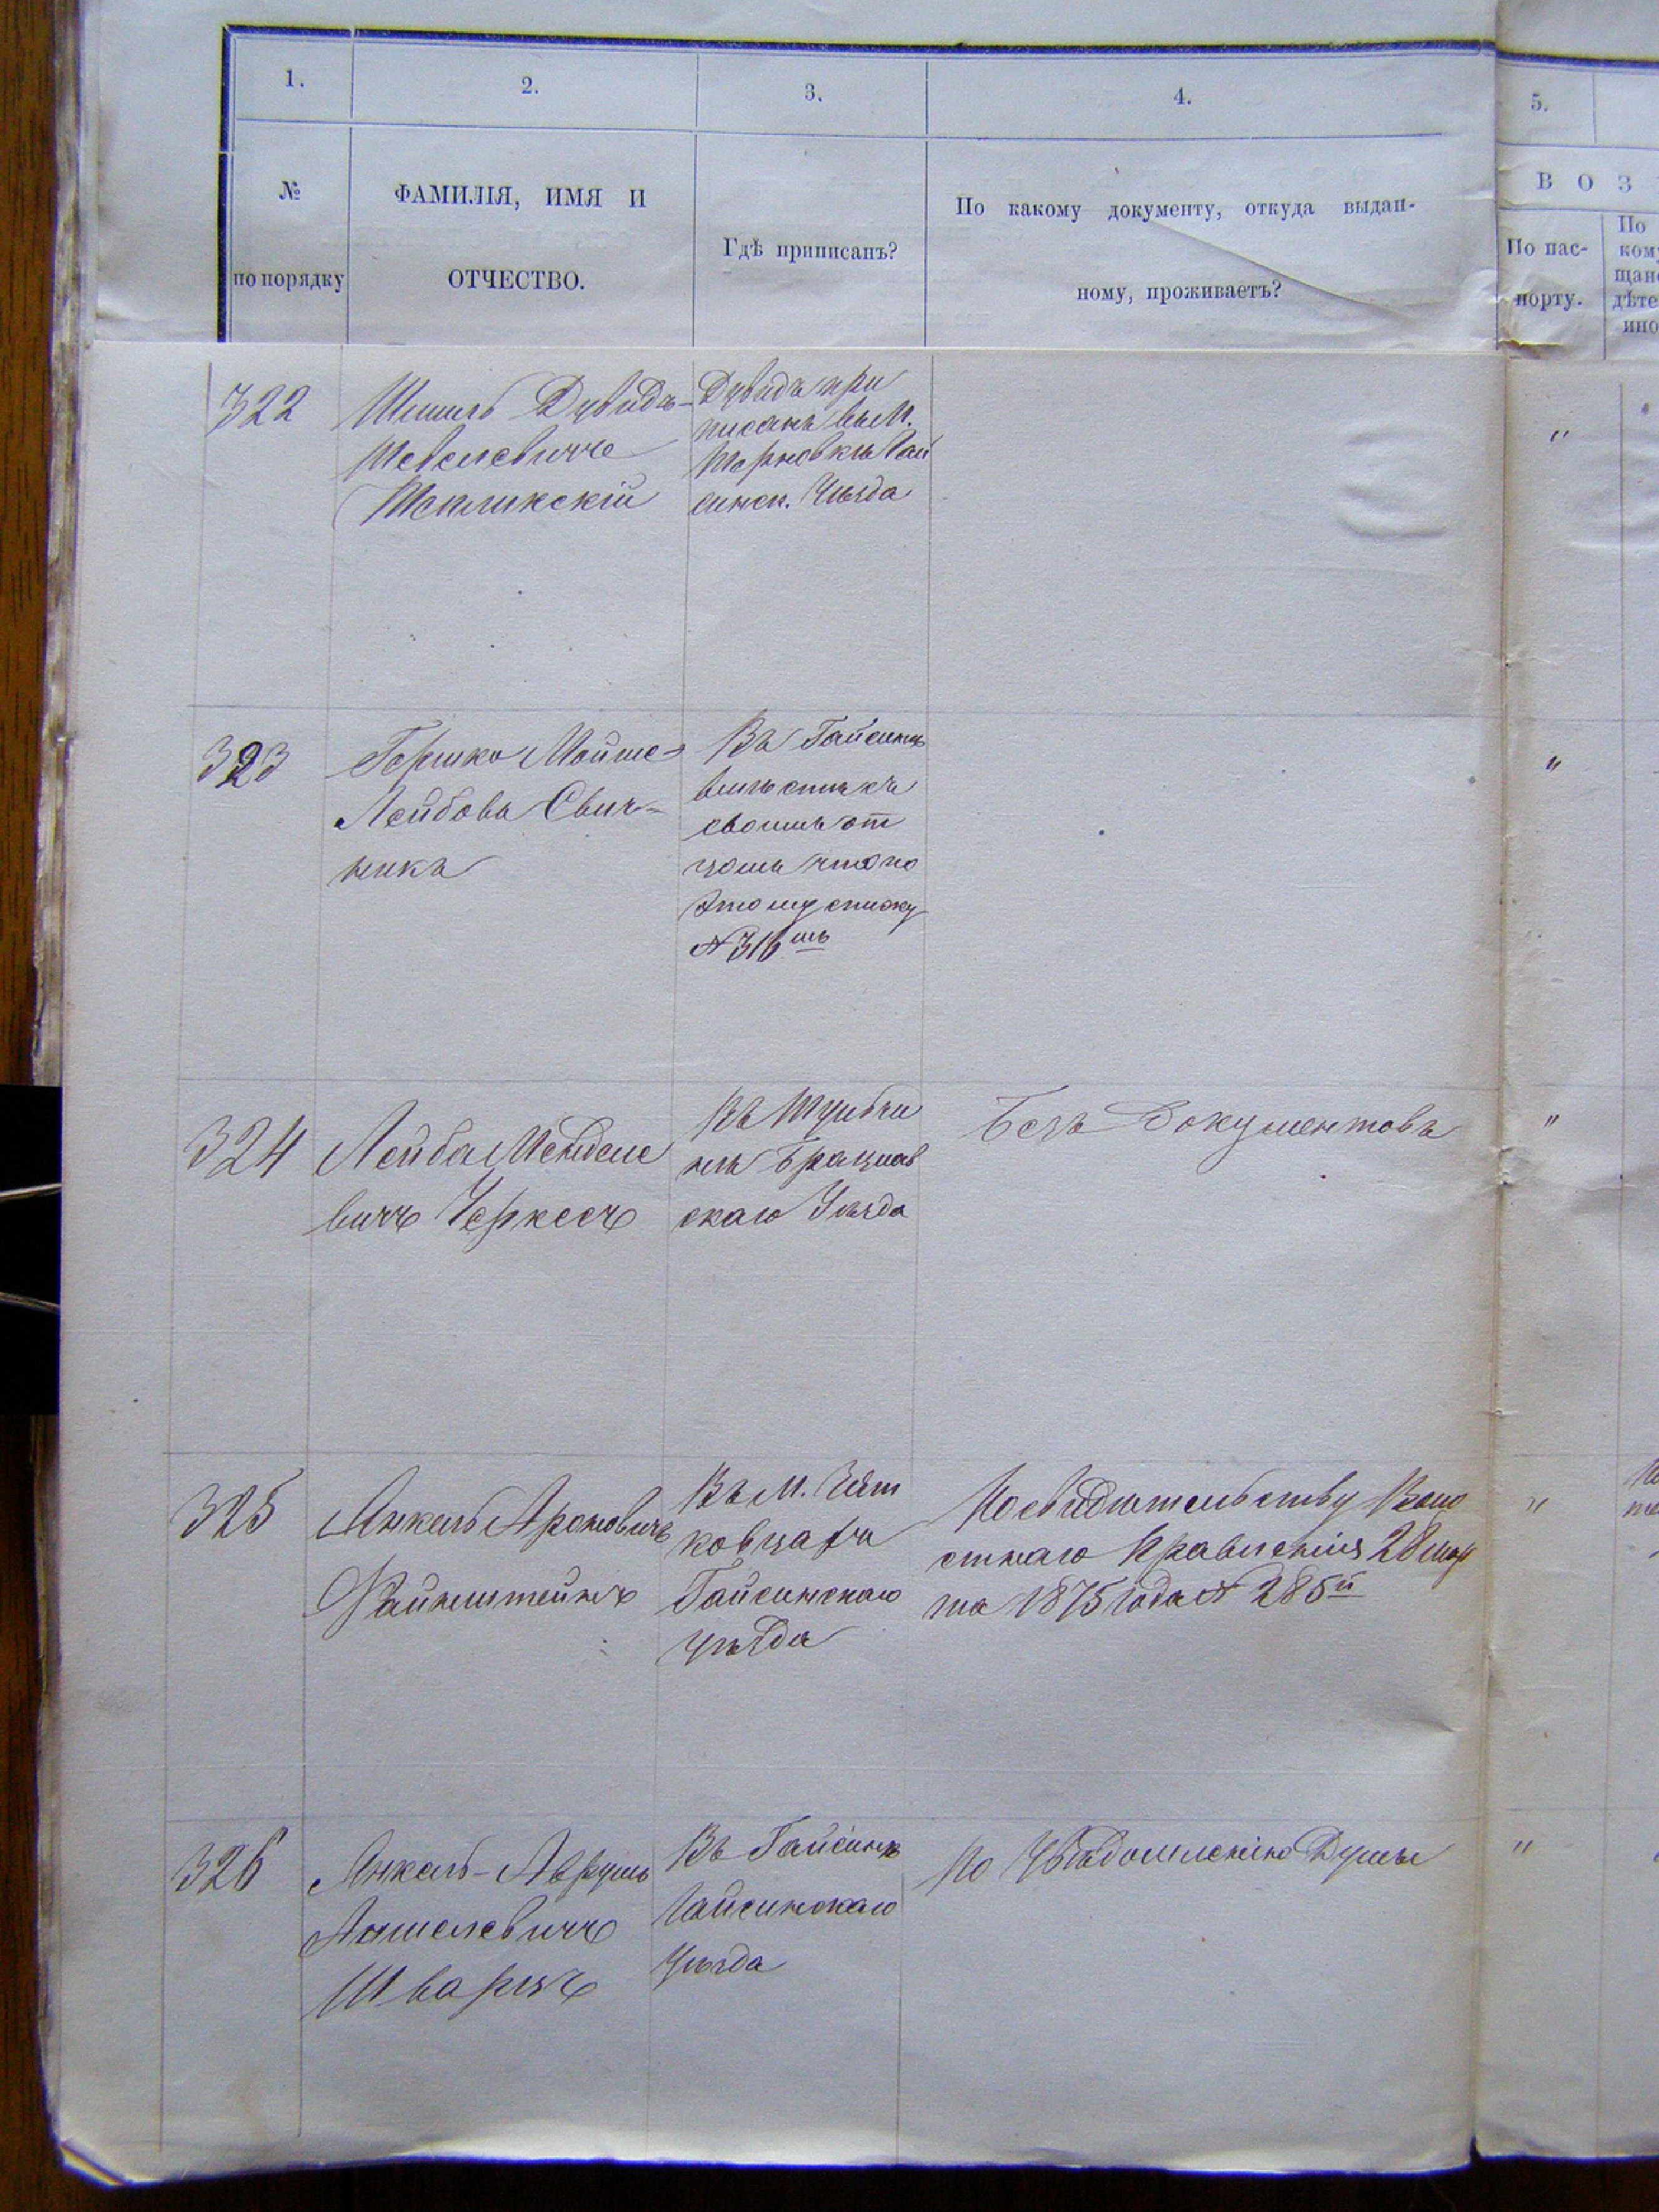 1.
2.
3.
4.
5.
№
по порядку
ФАМИЛІЯ, ИМЯ И
ОТЧЕСТВО.
Гдѣ приписанъ?
По какому документу, откуда выдан-
ному, проживаетъ?
В О З
По пас-
порту.
По
ком
щан
дѣте
ино
322
Дувидъ-
Шевелевичъ
Теплинскій
Дувидъ при
писанъ въ М.
Терновкѣ Гай
синск. Уѣзда
"
323
Гершко Мойше-
Лейбовъ Свич-
никъ
Въ Гайсинѣ
вмѣстѣ съ
своимъ от
цомъ что по
этому списку
№ 316мъ
"
324
Лейба Менделе
вичъ Черкесъ
Въ
нѣ Брацлав
скаго Уѣзда
Безъ Документовъ
"
325
Янкель Ароновичъ
Файнштейнъ
Въ М.
ковцахъ
Гайсинскаго
уѣзда
По свидѣтельству Воло
стнаго Правленія 28 мар
та 1875 года № 285й
"
326
Янкель-Аврумъ
Аншелевичъ
Шварцъ
Въ Гайсинѣ
Гайсинскаго
Уѣзда
По Увѣдомленію Думы
"